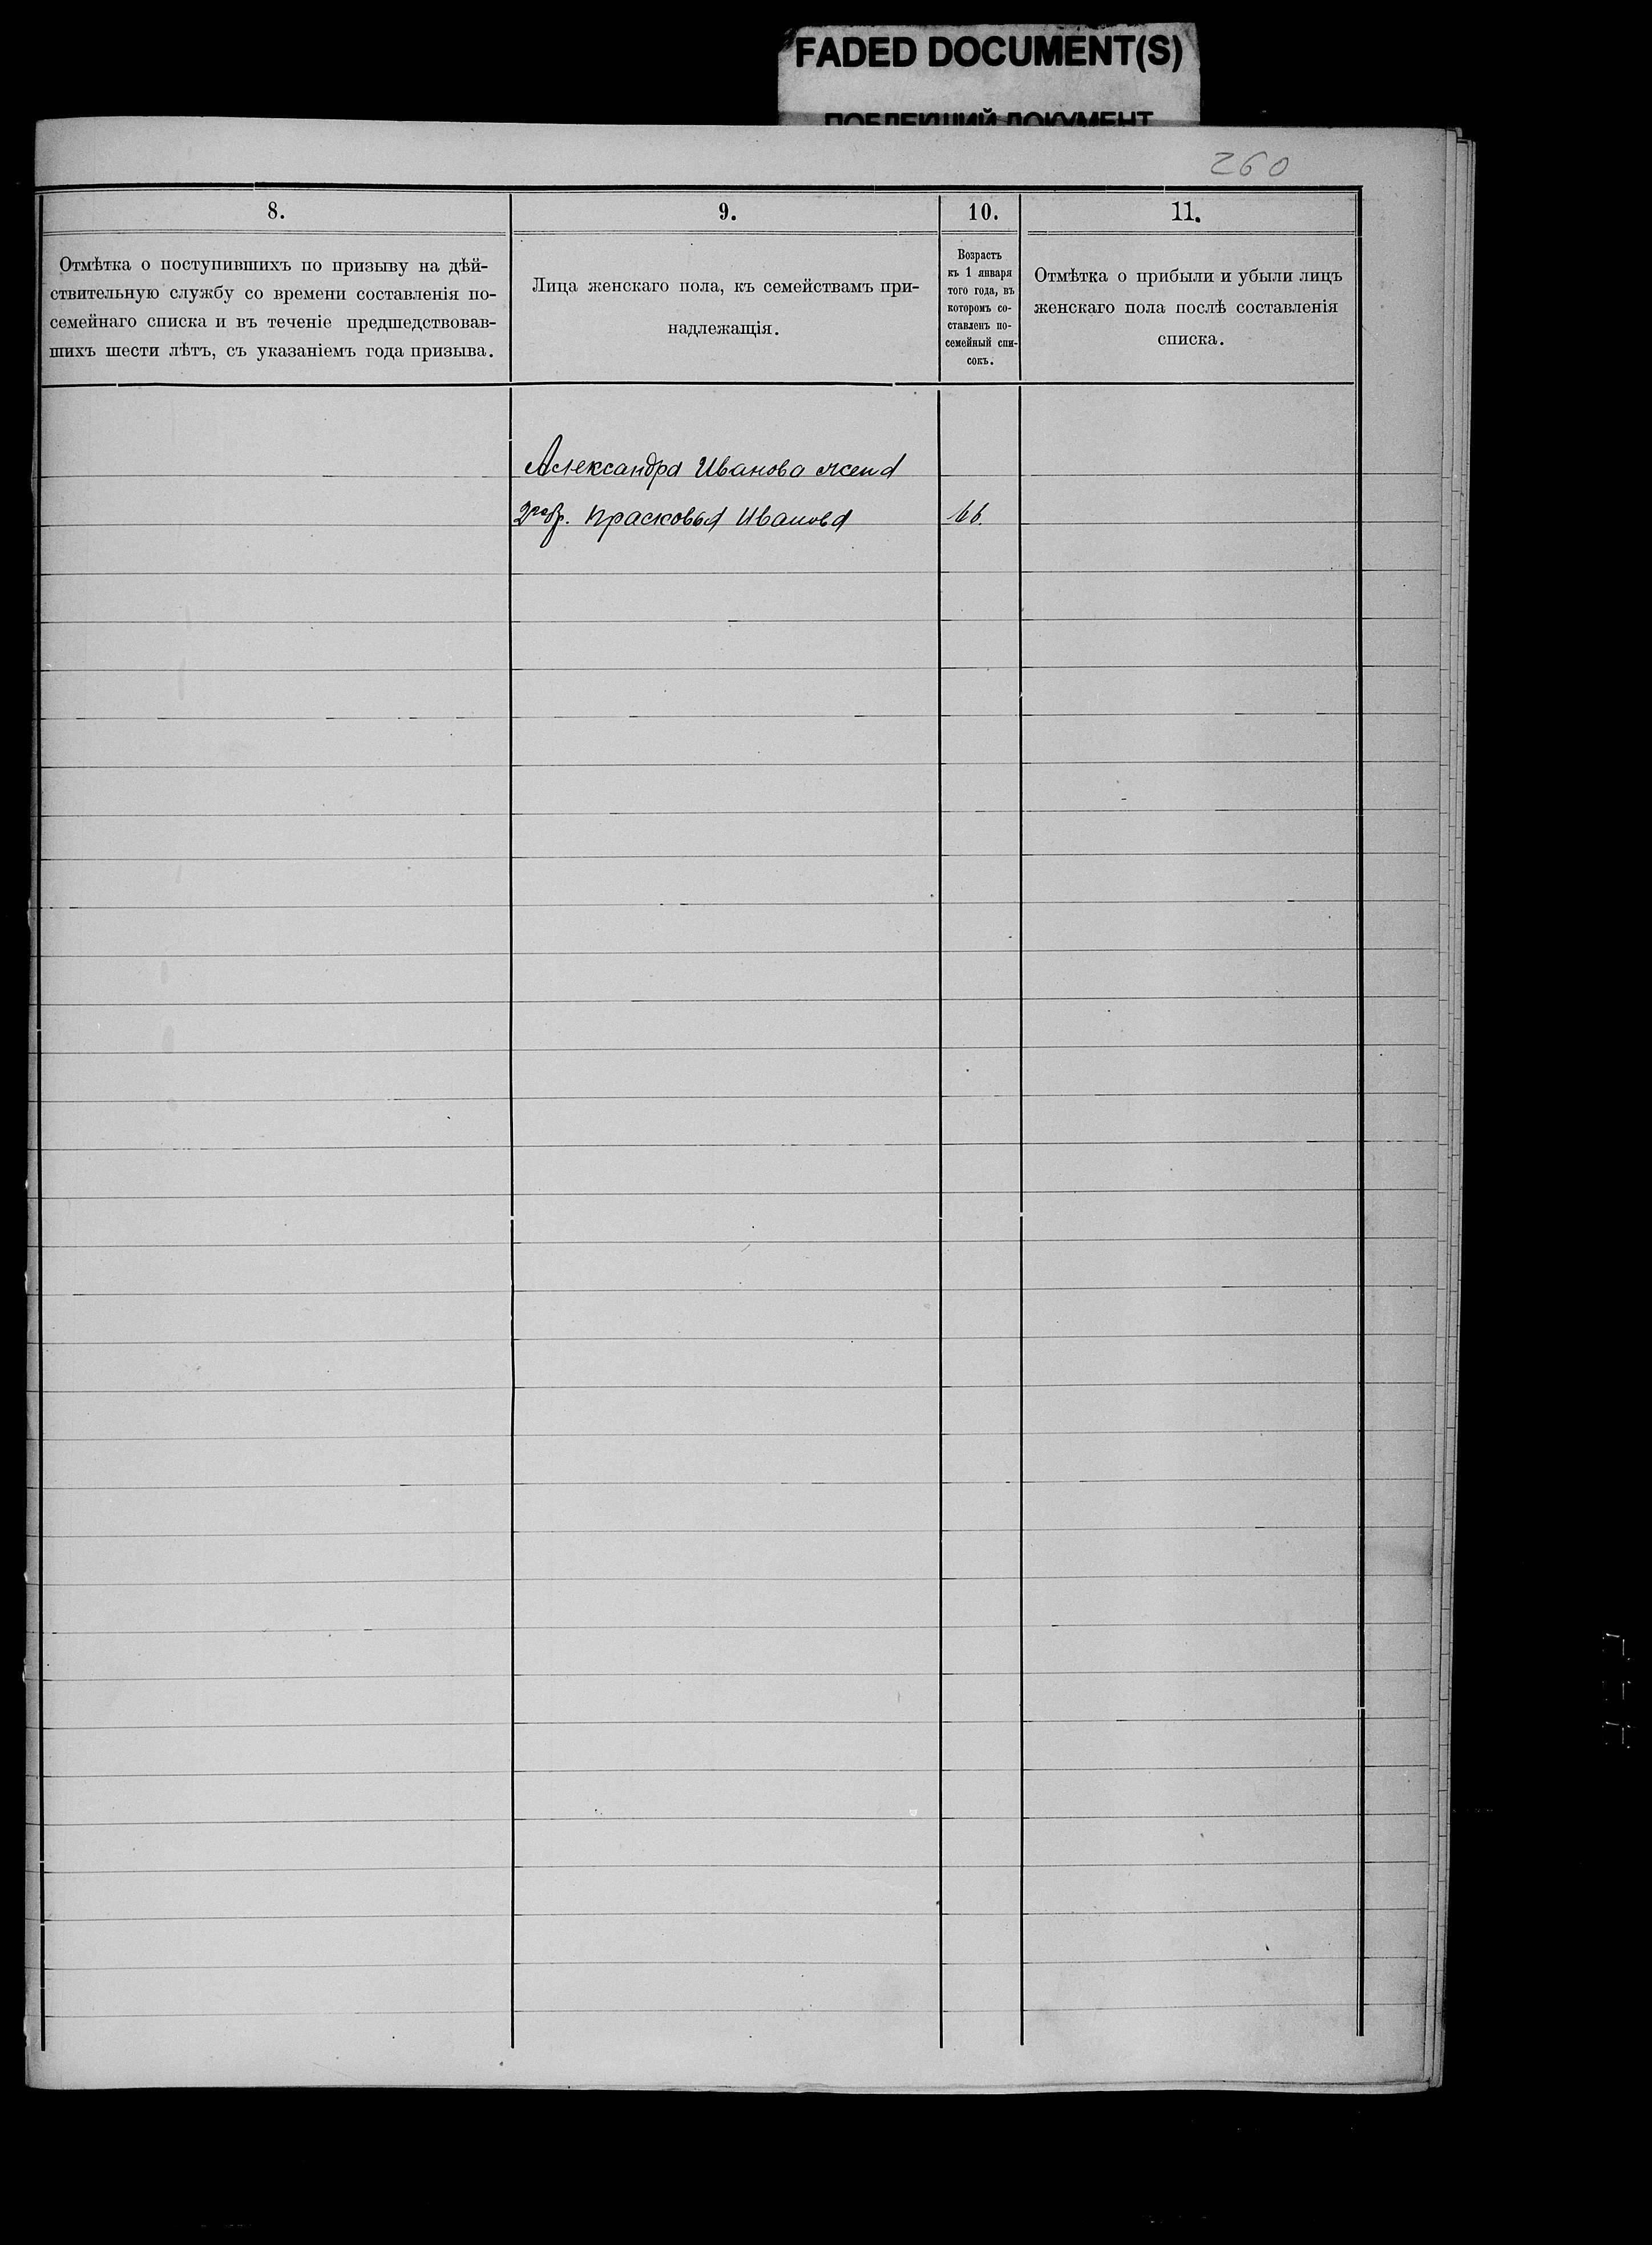 FADED DOCUMENT(S)
ПОБЛЕКШИЙ ДОКУМЕНТ
260
8.
Отмѣтка о поступившихъ по призыву на дѣй-
ствительную службу со времени составленія по-
семейнаго списка и въ теченіе предшедствовав-
шихъ шести лѣтъ, съ указаніемъ года призыва.
9.
Лица женскаго пола, къ семействамъ при-
надлежащія.
10.
Возрастъ
къ 1 января
того года, въ
которомъ со-
ставленъ по-
семейный спи-
сокъ.
11.
Отмѣтка о прибыли и убыли лицъ
женскаго пола послѣ составленія
списка.
Александра Иванова жена
2го бр. Прасковья Иванова